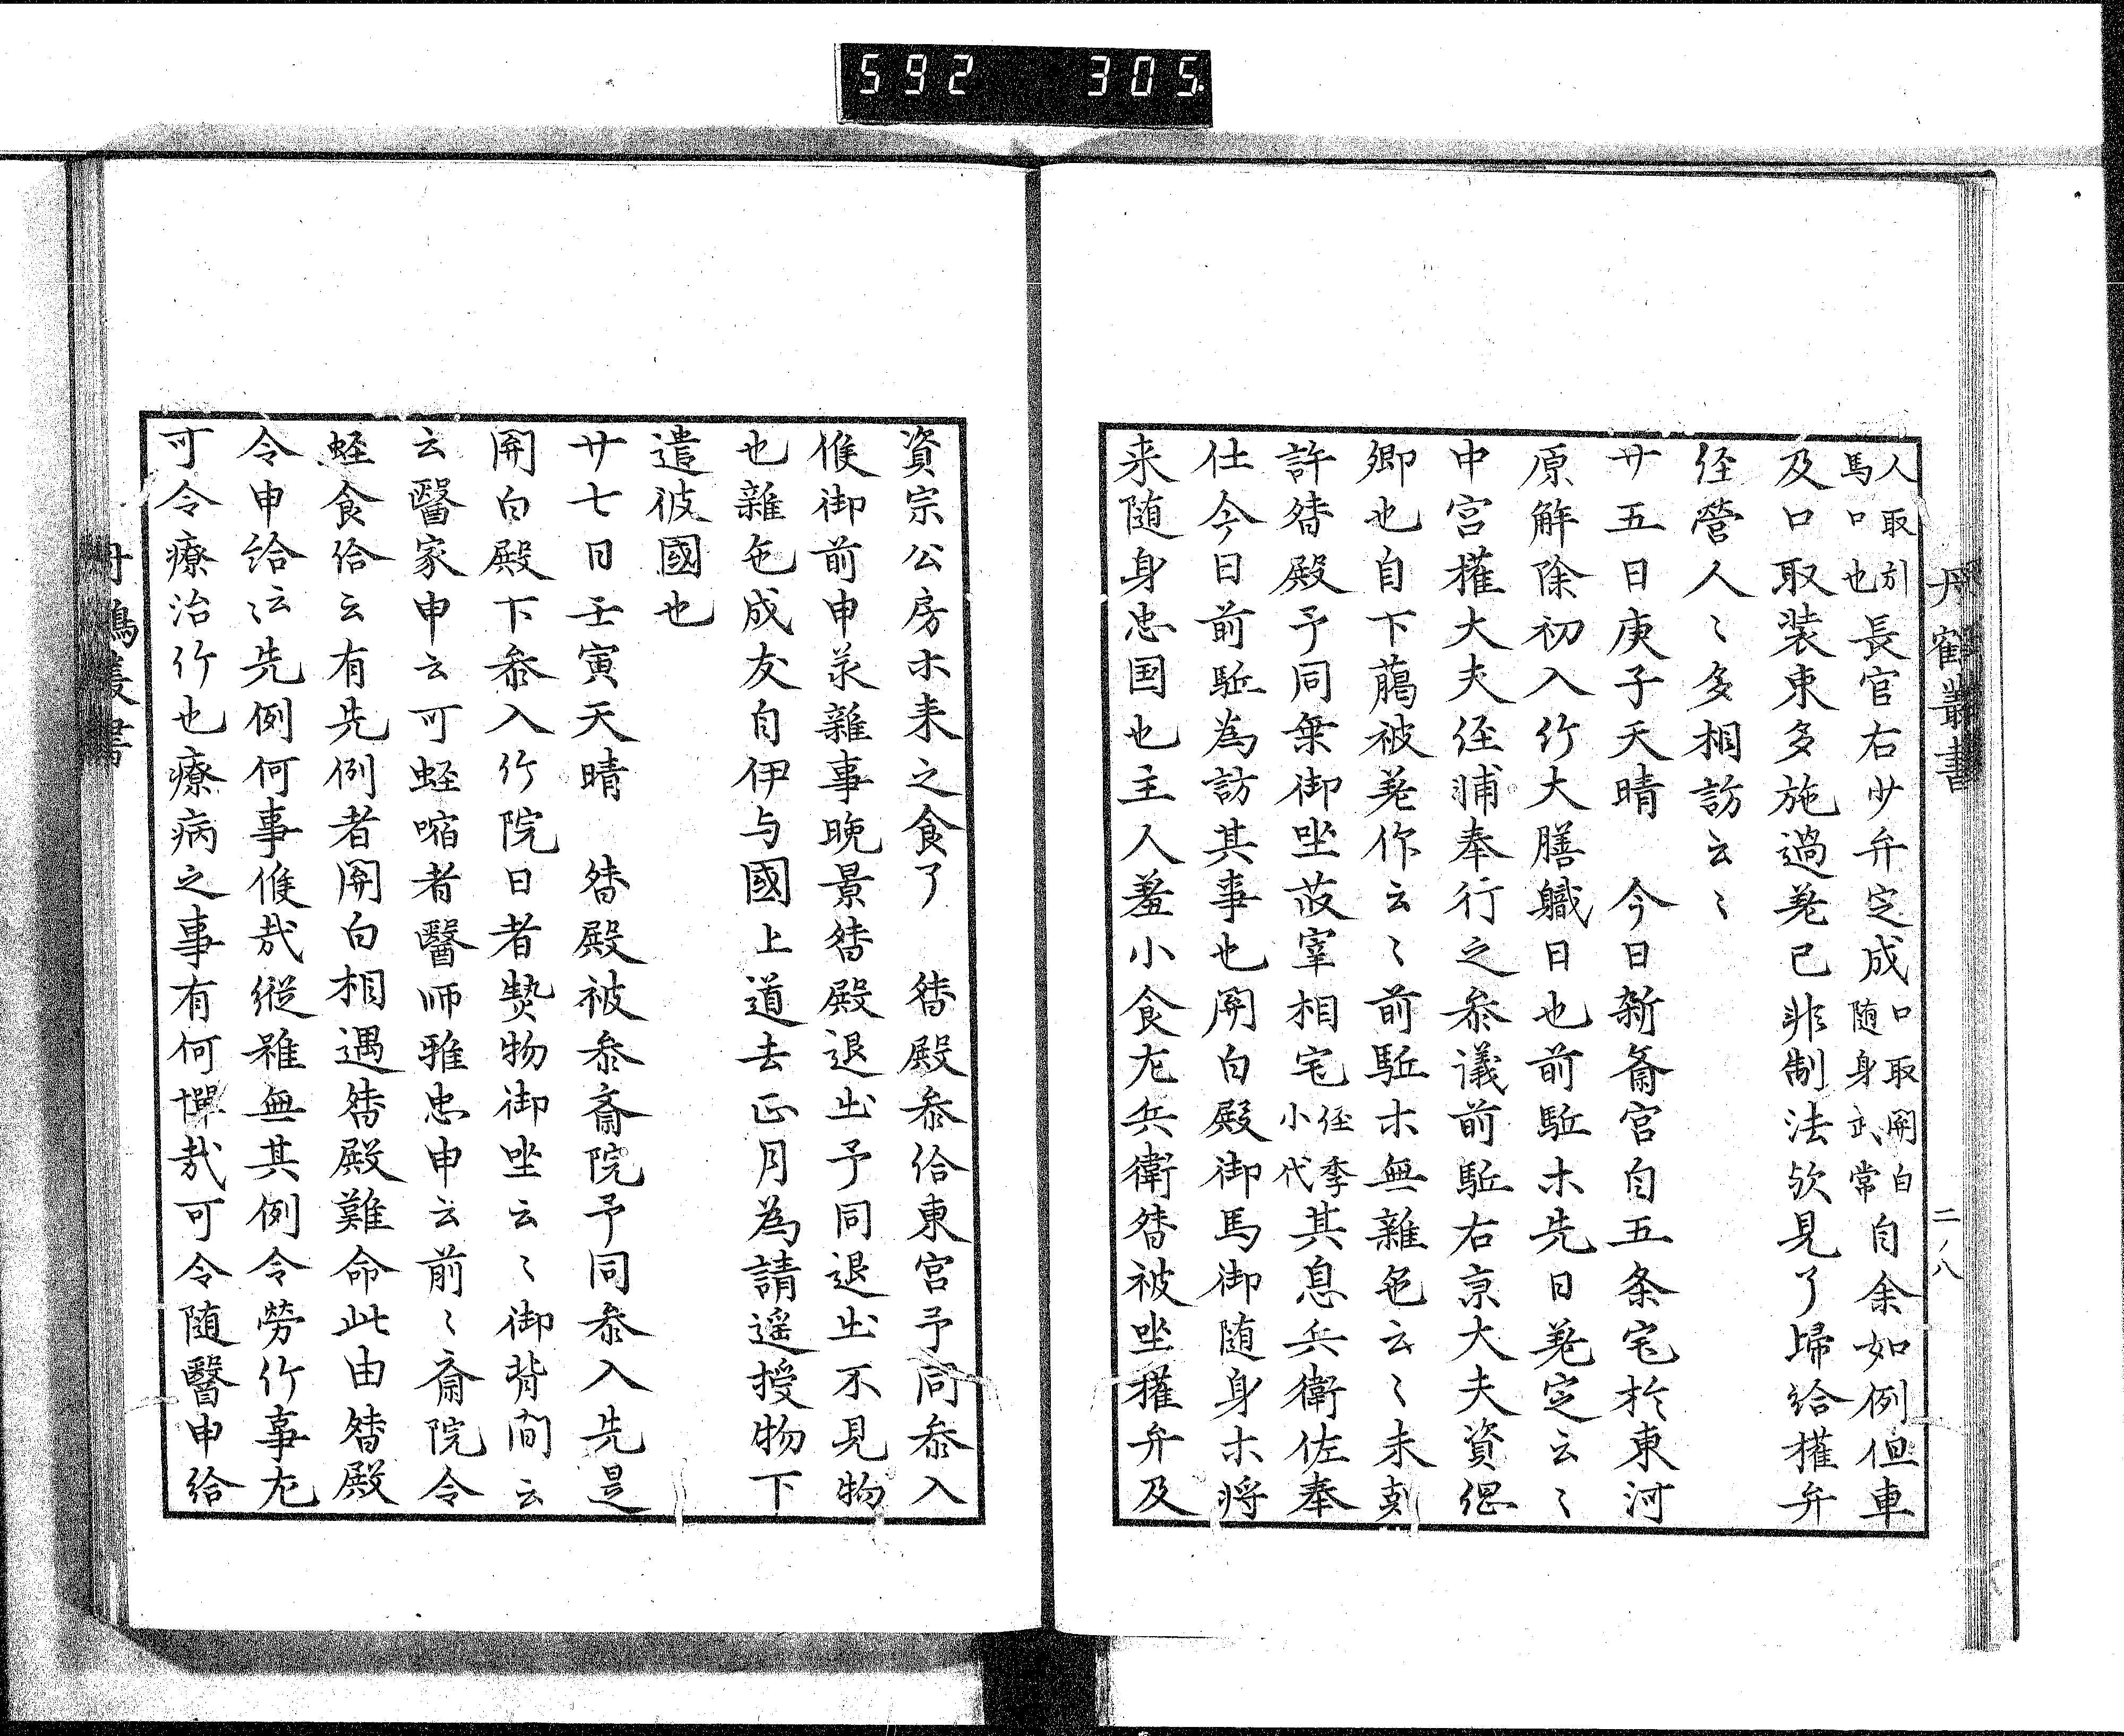 592 305
丹鶴叢書 二ノ八
人取引
馬口也長官右少弁定成口取関白
随身武常自余如例但車
及口取装束多施過差已非制法欤見了帰給権弁
経営人〻多相訪云〻
廿五日庚子天晴 今日新斎宮自五条宅於東河
原解除初入行大膳職日也前駈木先日差定云〻
中宮権大夫経輔奉行之参議前駈右京大夫資
卿也自下﨟被差作云〻前駈木無雑色云〻未剋
許督殿予同乗御坐故宰相宅経季
小代其息兵衛佐奉
仕今日前駈為訪其事也関白殿御馬御随身木将
来随身忠国也主人羞小食左兵衛督被坐権弁及
資宗公房木来之食了 督殿参給東宮予同参入
候御前申承雑事晩景督殿退出予同退出不見物
也雑色成友自伊与國上道去正月為請遥授物下
遣彼國也
廿七日壬寅天晴 督殿被参斎院予同参入先是
関白殿下参入行院日者熱物御坐云〻御背間云
云醫家申云可蛭噉者醫師雅忠申云前〻斎院令
蛭食給云有先例者関白相遇督殿難命此由督殿
令申給云〻先例何事候哉縦雖無其例令勞行事尤
可令療治行也療病之事有何憚哉可令随醫申給
丹鶴叢書